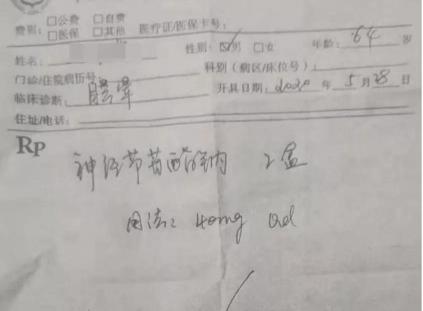 费别: □公费 □自费
□医保 □其他 医疗证/医保卡号:
姓名: 性别: ☑男 □女 年龄: 64 岁
门诊/住院病历号: 科别(病区/床位号):
临床诊断: 开具日期: 2020 年 5 月 28 日
住址/电话:
Rp
神经节苷酯钠 2盒
用法: 40mg qd